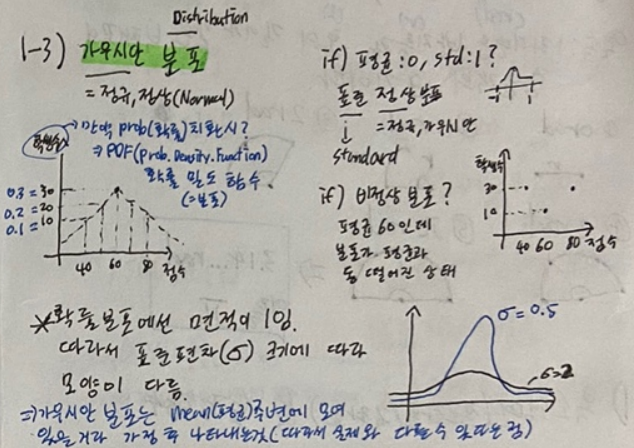 Distribution
1-3) 가우시안 분포
= 정규, 정상(Normal)
만약 prob(확률)치환시?
⇒ PDF(prob. Density. Function)
확률 밀도 함수.
(=분포)
학생수
0.3 = 30
0.2 = 20
0.1 = 10
40 60 80 점수
if) 평균:0, std:1?
-1 1
표준 정상분포
= 정규, 가우시안
standard
if) 비정상 분포?
평균 60인데
분포가 평균과
동 떨어진 상태
학생수
30
10
40 60 80 점수
*확률분포에선 면적이 1임.
따라서 표준편차(σ) 크기에 따라
모양이 다름.
⇒가우시안 분포는 mean(평균)주변에 모여
있는거라 가정 후 나타내는것(따라서 실제와 다를수 있다는점)
σ=0.5
σ=2